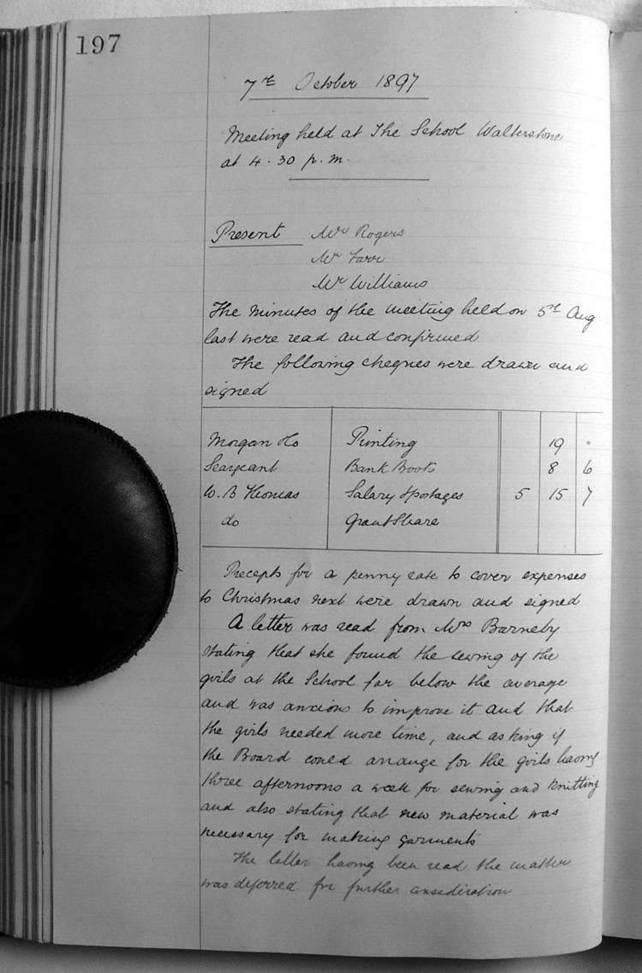 197
7th October 1897
Meeting held at The School Walterstone
at 4.30 p.m.
Present Mr Rogers
Mr Farr
Mr Williams
The Minutes of the Meeting held on 5th Aug
last were read and confirmed
The following cheques were drawn and
signed
Morgan Printing 19 "
Seargeant Bank Book 8 6
W. B Thomas Salary & postages 5 15 7
do Grant Share
Precepts for a penny rate to cover expenses
to Christmas next were drawn and signed
A letter was read from Mrs Barneby
stating that she found the sewing of the
girls at the School far below the average
and was anxious to improve it and that
the girls needed more time, and asking if
the Board could arrange for the girls having
three afternoons a week for sewing and knitting
and also stating that new material was
necessary for making garments
The letter having been read the matter
was deferred for further consideration